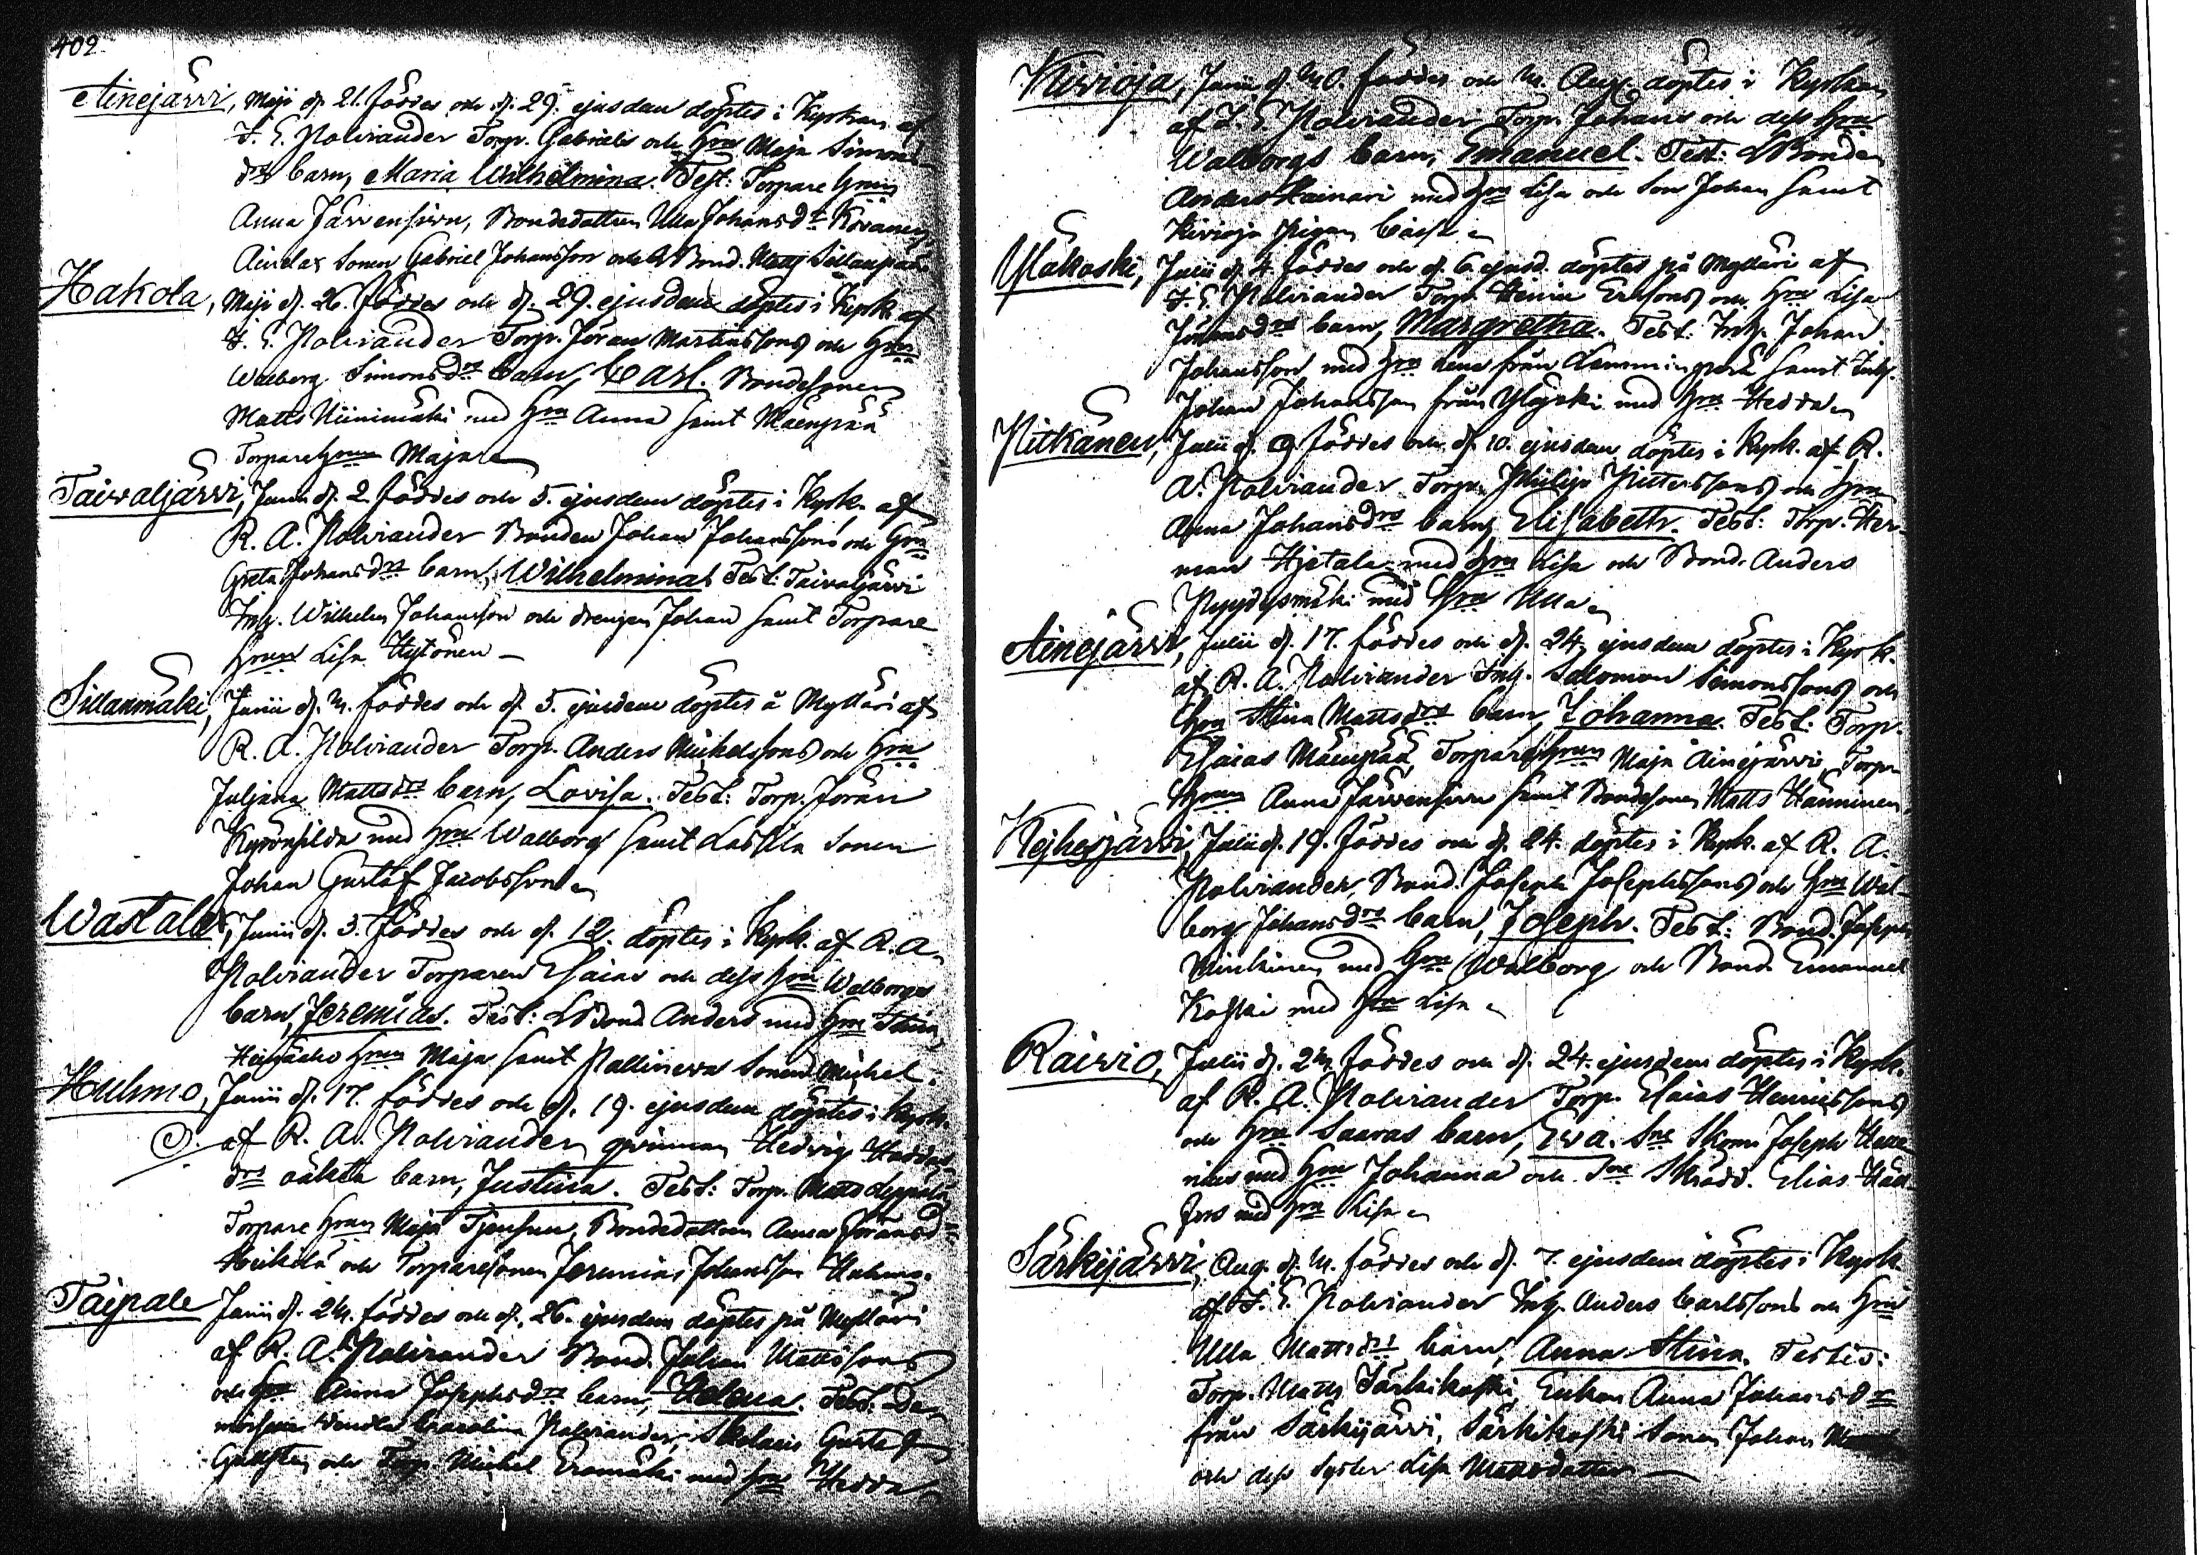 402.
Ainejärvi, Maji d. 21. föddes och d. 29. ejusdem döptes i Kyrkan af
F. E. Polviander Torp. Gabriels och Hrus Maja Simons
drs barn, Maria Wilhelmina. Test: Torpare Hrun
Anna Järvensivu, Bondedottren Ulla Johansdr
sonen Gabriel Johansson och Bond. Matts Sillanpää
Hakola, Maji d. 26. föddes och d. 29. ejusdem döptes i Kyrk. af
F. E. Polviander Torp. Jöran Martinssons och Hrus
Walborg Simonsdrs barn, Carl. Bondesonen
Matts Niinimäki med Hru Anna samt Mäenpää
Torpare Hrun Maja
Taivaljärvi, Junii d. 2 föddes och 5. ejusdem döptes i Kyrk. af
R. A. Polviander Bonden Johan Johanssons och Hrus
Greta Johansdrs barn, Wilhelmina. Test: Taivaljärvi
Inh. Wilhelm Johansson och drengen Johan samt Torpare
Hrun Lisa Hytönen
Sillanmäki, Junii d. 4. föddes och d. 5. ejusdem döptes å Mylläri af
R. A. Polviander Torp. Anders Michelssons och Hru
Juljana Mattsdrs barn, Lovisa. Test: Torp. Jöran
med Hru Walborg samt Lassila sonen
Johan Gustaf Jacobsson
Wastala, Junii d. 3. föddes och d. 12. döptes i Kyrk. af R. A.
Polviander Torparen Esaias och dess Hru Walborgs
barn, Jeremias. Test: Bond. Anders med Hru Stina
Hrun Maja samt sonen Michel.
Huhmo, Junii d. 17. föddes och d. 19. ejusdem döptes i Kyrk.
af R. A. Polviander qvinnan Hedvig
drs oäkta barn, Justina. Test: Torp. Matts Leppälä
Torpare Hrun Maja Bondedottren Anna Jöransdr
Heikilä och Torparesonen Jeremias Johansson Huhmo.
Taipale Junii d. 24. föddes och d. 26. ejusdem döptes på Mylläri
af R. A. Polviander Bond. Johan Mattssons
och Hru Anna Josephsdrs barn, Helena. Test: De-
moiselle Vendla Carolina Polviander, Skolaris Gustaf
och Torp. Michel Eromäki med Hru Hedda
Kivioja, Junii d. 40. föddes och 4. Aug. döptes i Kyrkan
af F. E. Polviander Torp. Johans och dess Hrus
Walborgs barn, Emanuel. Test: Bonden
Anders med Hru Lisa och son Johan samt
Kivioja Pigan Caisa
Yläkoski, Julii d. 4. föddes och d. 6. ejusd. döptes på Mylläri af
F. E. Polviander Torp. Henric Ericssons och Hrus Lisa
Jöransdrs barn, Margretha. Test: Inh. Johan
Johansson med Hru Lena från Lamminperä samt Inh.
Johan Johansson från Yläjoki med Hru Hedda
Pitkänen, Julii d. 9. föddes och d. 10. ejusdem döptes i Kyrk. af R.
A. Polviander Torp. Philip Pitterssons och Hru
Anna Johansdrs barn, Elisabeth. Test: Torp. Her-
man Hjetala med Hru Lisa och Bond. Anders
Pyydysmäki med Hru Ulla
Ainejärvi, Julii d. 17. föddes och d. 24. ejusdem döptes i Kyrk.
af R. A. Polviander Inh. Salomon Simonssons och
Hru Stina Mattsdrs barn, Johanna. Test: Torp.
Esaias Mäenpää, Torpare Hrun Maja Ainejärvi, Torp.
Hrun Anna Järvensivu samt Bondesonen Matts Hänninen.
Kejhesjärvi, Julii d. 19. föddes och d. 24. döptes i Kyrk. af R. A.
Polviander, Bond. Joseph Josephssons och Hru Wal-
borg Johansdrs barn, Joseph. Test: Bond. Joseph
Minkinen med Hru Walborg och Bond. Emanuel
Koski med Hru Lisa
Raivio, Julii d. 24. föddes och d. 24. ejusdem döptes i Kyrk.
af R. A. Polviander Torp. Esaias Henricssons
och Hru Saaras barn, Eva. Sne Skom. Joseph
nius med Hru Johanna och Sne Skrädd. Elias
fors med Hru Lisa
Särkijärvi, Aug. d. 4. föddes och d. 7. ejusdem döptes i Kyrk.
af F. E. Polviander Inh. Anders Carlssons och Hru
Ulla Mattsdrs barn, Anna Stina. Testes:
Torp. Matts Särkikoski, Enkan Anna Johansdr
från Särkijärvi, Särkikoski sonen Johan
och dess syster Lisa Mattsdotter